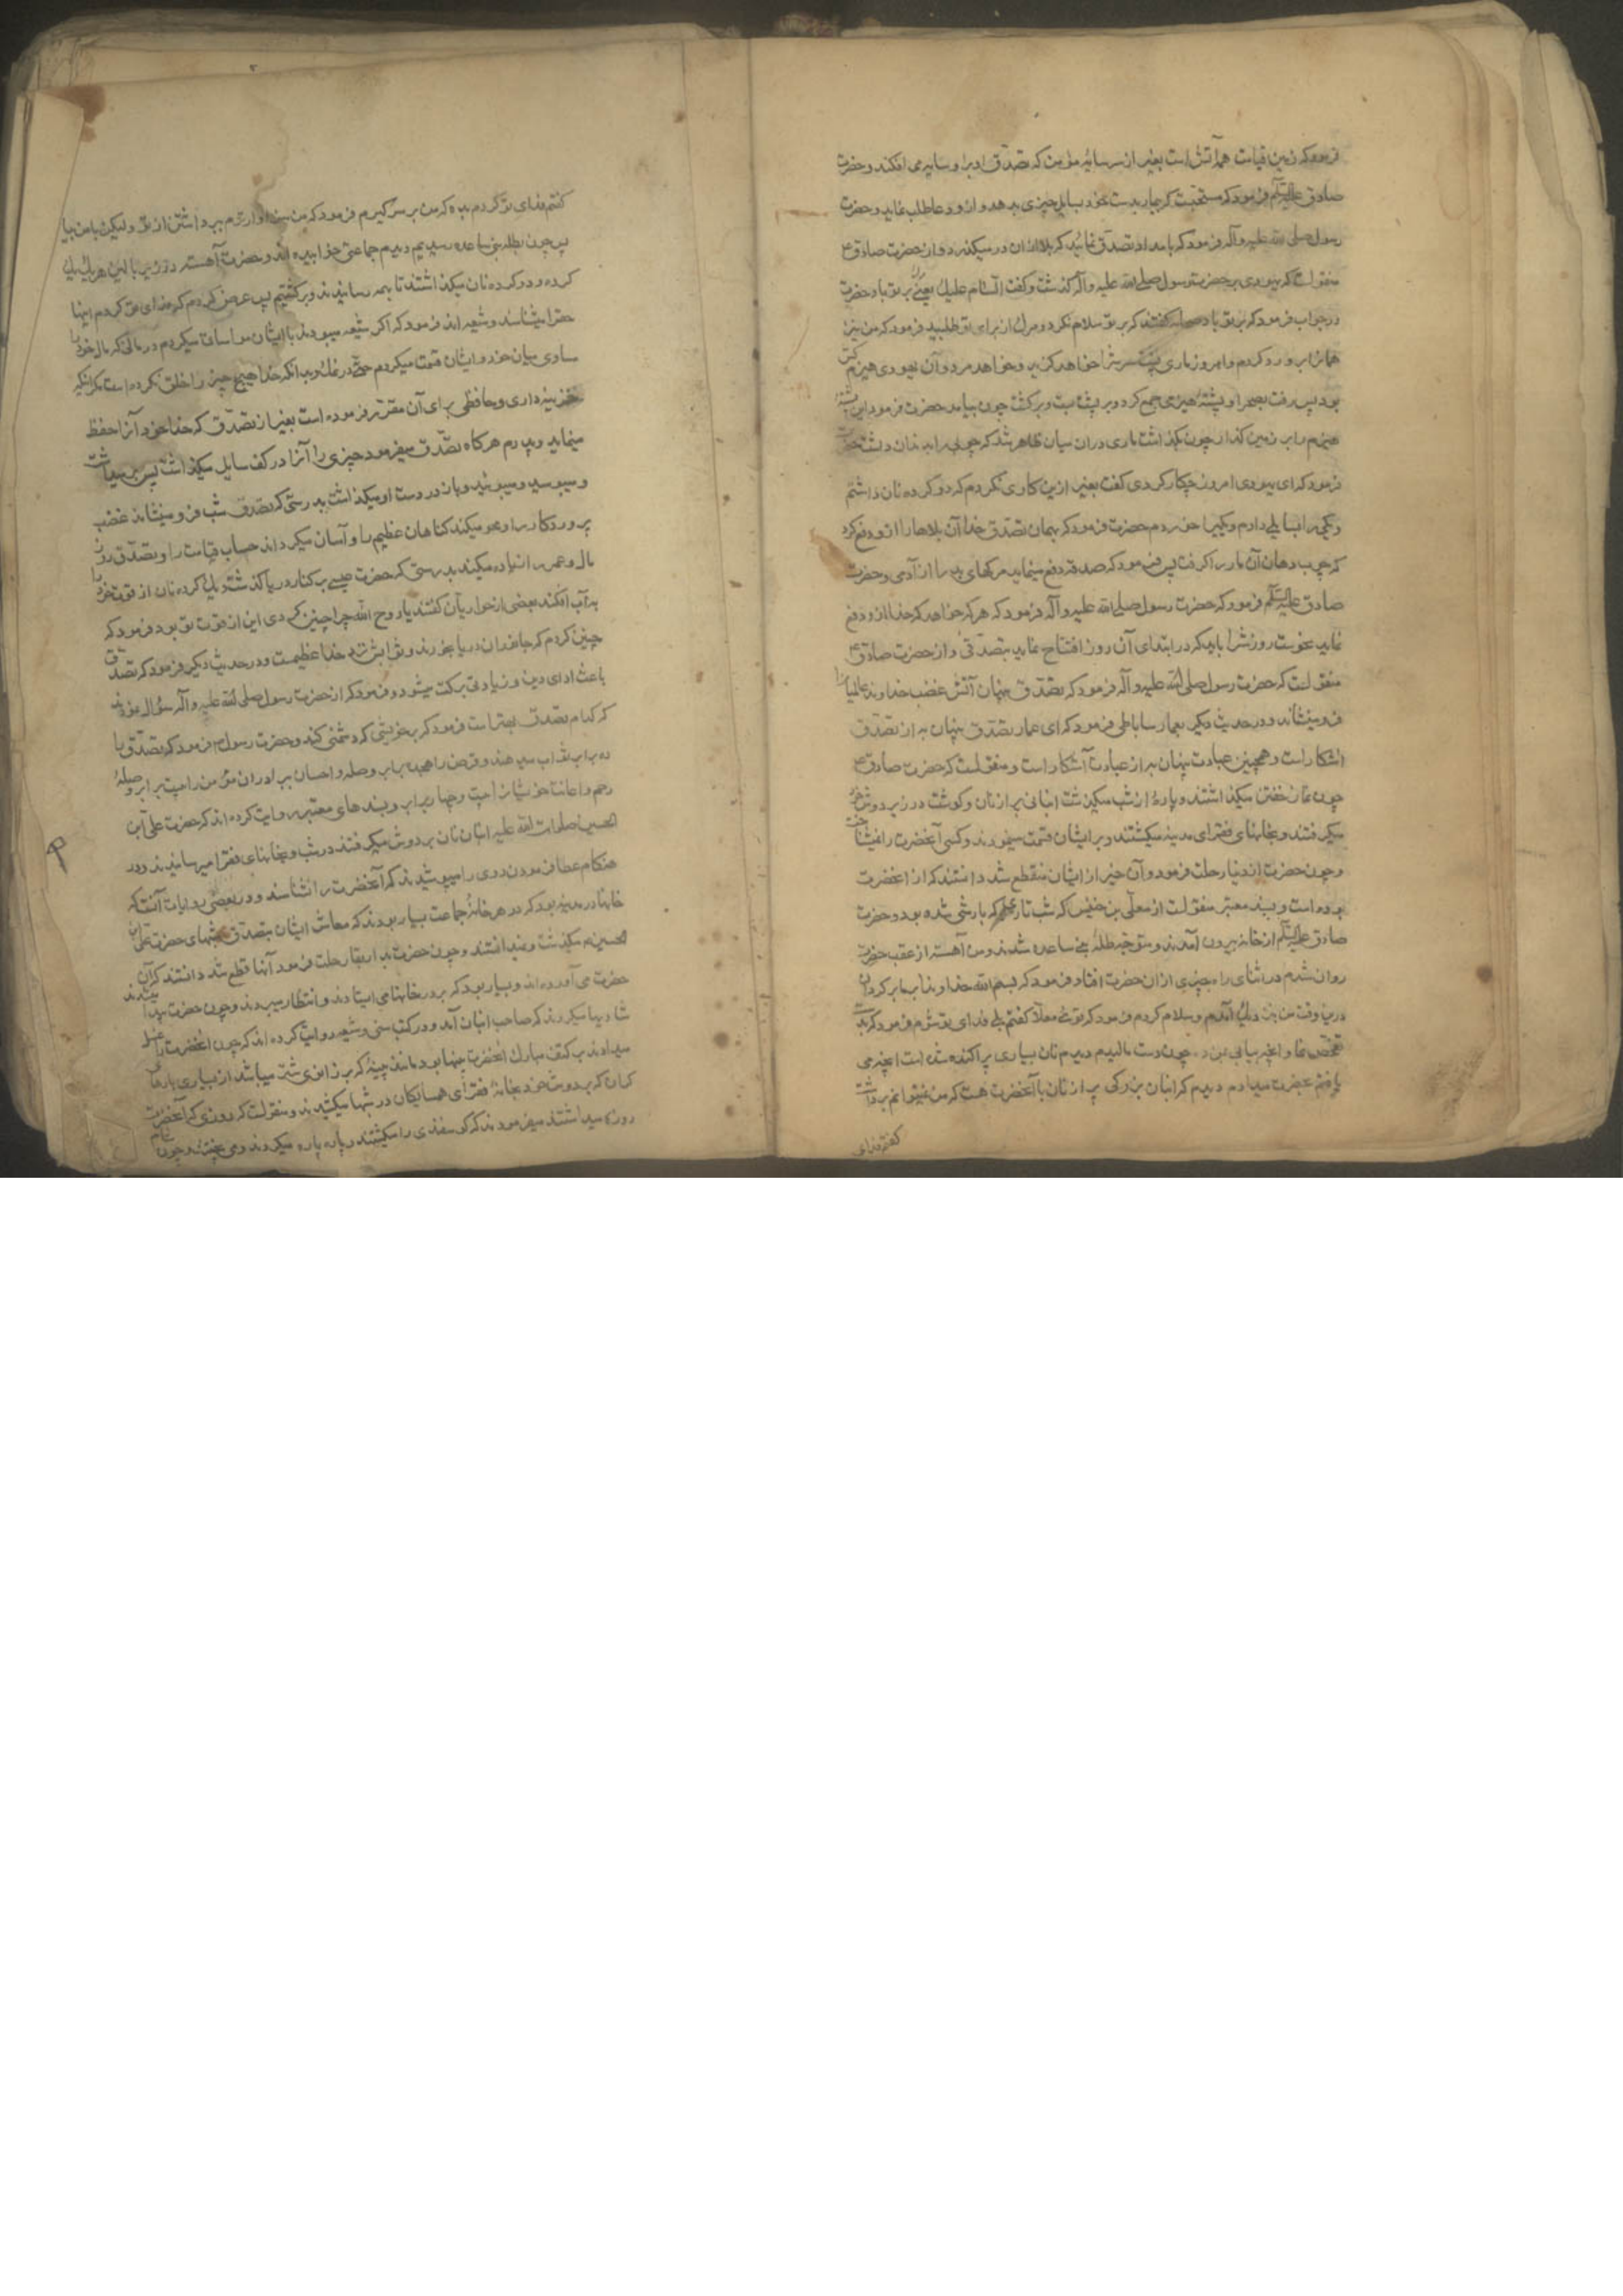 فرمود که زمین قیامت همه آتش است بغیر از سر سایه مؤمن که تصدق او براو سایه می افکند و حضرت
صادق علیه السلام فرمود که مستحبست که بیمار بدست خود بسایل چیزی بدهد و از او دعا طلب نماید و حضرت
رسول صلی الله علیه وآله فرمود که بامداد تصدق نمائید که بلا از آن در نمیگذرد و از حضرت صادق ع
منقول است که یهودی بر حضرت رسول صلی الله علیه وآله گذشت و گفت السام علیک یعنی مرگ بر تو باد حضرت
در جواب فرمود که بر تو باد صحابه گفتند که بر تو سلام نکرد و مرگ از برای تو طلبید فرمود که من نیز
همان را بر او رد کردم و امروز ماری پشت سرش را خواهد گزید و خواهد مرد و آن یهودی هیزم کش
بود پس رفت بصحرا و پشته هیزمی جمع کرد و بر پشت بست و برگشت چون بیامد حضرت فرمود این پشته
هیزم را بر زمین گذار چون بگذاشت ماری در آن میان ظاهر شد که چوبی را بدندان داشت حضرت
فرمود که ای یهودی امروز چکار کردی گفت بغیر ازین کاری نکردم که دو گرده نان داشتم
ویکی را بسایلی دادم و یکی را خوردم حضرت فرمود که بهمان تصدق خدا آن بلاها را از تو دفع کرد
که چوب دهان آن مار را گرفت پس فرمود که صدقه دفع مینماید مرگهای بد را از آدمی و حضرت
صادق علیه السلام فرمود که حضرت رسول صلی الله علیه وآله فرمود که هر که خواهد که خدا از او دفع
نماید نحوست روزش را باید که در ابتدای آن روز افتتاح نماید بتصدقی و از حضرت صادق ع
منقول است که حضرت رسول صلی الله علیه وآله فرمود که تصدق پنهان آتش غضب خداوند عالمیان را
فرو مینشاند و در حدیث دیگر بعمار ساباطی فرمود که ای عمار تصدق پنهان به از تصدق
آشکار است و همچنین عبادت پنهان به از عبادت آشکار است و منقول است که حضرت صادق ع
چون نماز خفتن میگذاشتند و پارهٔ از شب میگذشت انبانی پر از نان و گوشت در زیر دوش خود
میگرفتند و بخانهای فقرای مدینه میگشتند و بر ایشان قسمت میفرمودند و کسی آنحضرت را نمیشناخت
و چون حضرت از دنیا رحلت فرمود و آن خیر از ایشان منقطع شد دانستند که از آنحضرت
بوده است و بسند معتبر منقول است از معلی بن خنیس که شب تاری که بارشی شده بود و حضرت
صادق علیه السلام از خانه بیرون آمدند و متوجه ظله بنی ساعده شدند و من آهسته از عقب حضرت
روان شدم در اثنای راه چیزی از آن حضرت افتاد فرمود که بسم الله خداوندا بما برگردان
درین وقت من نزدیک آمدم و سلام کردم فرمود که توئی معلا گفتم بلی فدای تو شوم فرمود که بدست
تفحص نما و آنچه بیابی بمن ده چون دست مالیدم دیدم نان بسیاری پراکنده شده است آنچه می
یافتم بحضرت میدادم دیدم که انبان بزرگی پر از نان با آنحضرت هست که من نمیتوانم برداشت
گفتم فدای
گفتم فدای تو گردم بده که من بر سر گیرم فرمود که من سزاوارترم ببرداشتن از تو ولیکن با من بیا
پس چون بظله بنی ساعده رسیدیم دیدم جماعتی خوابیده اند و حضرت آهسته در زیر بالین هر یک یک
گرده و دو گرده نان میگذاشتند تا بهمه رسانیدند و برگشتیم پس عرض کردم که فدای تو گردم اینها
حق را میشناسند و شیعه اند فرمود که اگر شیعه میبودند با ایشان مواسات میکردم در مالی که مال خود را
مساوی میان خود و ایشان قسمت میکردم حتی در نمک و بدانکه خدا هیچ چیز را خلق نکرده است مگر آنکه
خزینه داری و حافظی برای آن مقرر فرموده است بغیر از تصدق که خدا خود آنرا حفظ
مینماید و پدرم هرگاه تصدق میفرمود چیزی را آنرا در کف سایل میگذاشت پس بر میداشت
و میبوسید و میبوئید و باز در دست او میگذاشت بدرستی که تصدق شب فرو مینشاند غضب
پروردگار را و محو میکند گناهان عظیم را و آسان میگرداند حساب قیامت را و تصدق روز
مال و عمر را زیاده میکند بدرستی که حضرت عیسی بر کنار دریا گذشت و یک گرده نان از قوت خود را
به آب افکند بعضی از حواریان گفتند یا روح الله چرا چنین کردی این از قوت تو بود فرمود که
چنین کردم که جانوران دریا بخورند و ثوابش نزد خدا عظیمست و در حدیث دیگر فرمود که تصدق
باعث ادای دین و زیادتی برکت میشود و فرمود که از حضرت رسول صلی الله علیه وآله سؤال نمودند
که کدام تصدق بهتر است فرمود که بر خویشی که دشمنی کند و حضرت رسول ص فرمود که تصدق را
ده برابر ثواب میدهند و قرض را هجده برابر و صله و احسان برادران مؤمن را بیست برابر و صله
رحم و اعانت خویشان را بیست و چهار برابر و بسندهای معتبر روایت کرده اند که حضرت علی بن
الحسین صلوات الله علیه انبان نان بر دوش میگرفتند در شب و بخانهای فقرا میرسانیدند و در
هنگام عطا فرمودن روی را میپوشیدند که آنحضرت را نشناسند و در بعضی روایات آنست که
خانها در مدینه بود که در هر خانه جماعت بسیار بودند که معاش ایشان بتصدق شبهای حضرت علی بن
الحسین ع میگذشت و نمیدانستند و چون حضرت بدار بقا رحلت فرمود آنها قطع شد دانستند که آن
حضرت می آورده اند و بسیار بود که بر در خانها می ایستادند و انتظار میبردند و چون حضرت پیدا میشدند
شادیها میکردند که صاحب انبان آمد و در کتب سنی و شیعه روایت کرده اند که چون آنحضرت را غسل
میدادند بر کتف مبارک آنحضرت پینها بود مانند پینهٔ که بر زانوی شتر میباشد از بسیاری بارهای
گران که بر دوش خود بخانهٔ فقرای همسایگان در شبها میکشیدند و منقول است که روزی که آنحضرت
روزه میداشتند میفرمودند که گوسفندی را میکشتند و پاره پاره میکردند و می پختند و چون شام